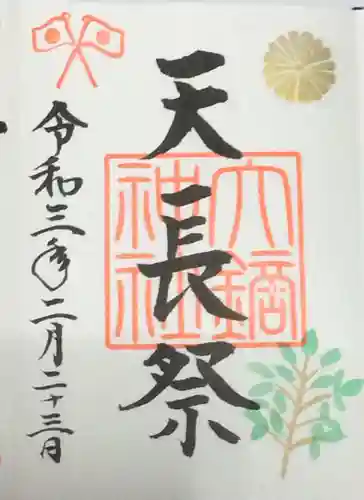 天長祭
六鏑
神社
令和三年二月二十三日